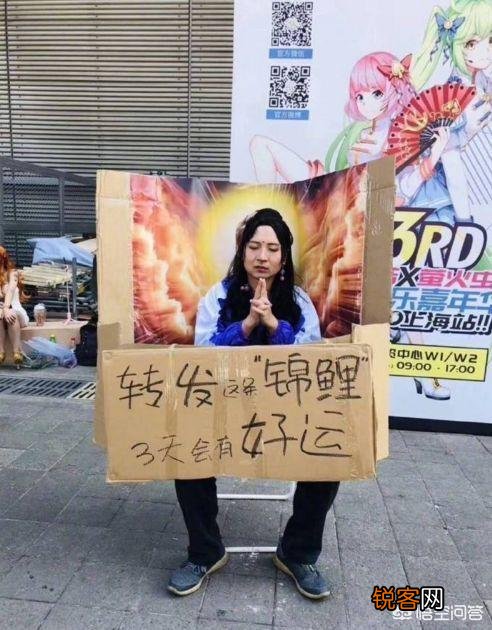 官方微信
官方微博
3RD
X萤火虫
乐嘉年华
上海站!!
中心W1/W2
09:00 - 17:00
转发这条“锦鲤”
3天会有好运
锐客网
悟空问答